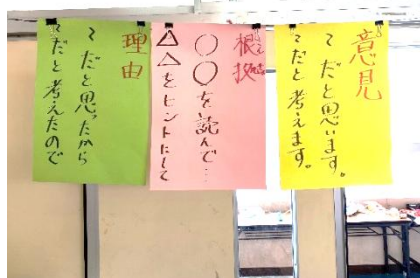 意見
〜だと思います。
〜だと考えます。
根拠
○○を読んで…
△△をヒントにして
理由
〜だと思ったから
〜だと考えたので